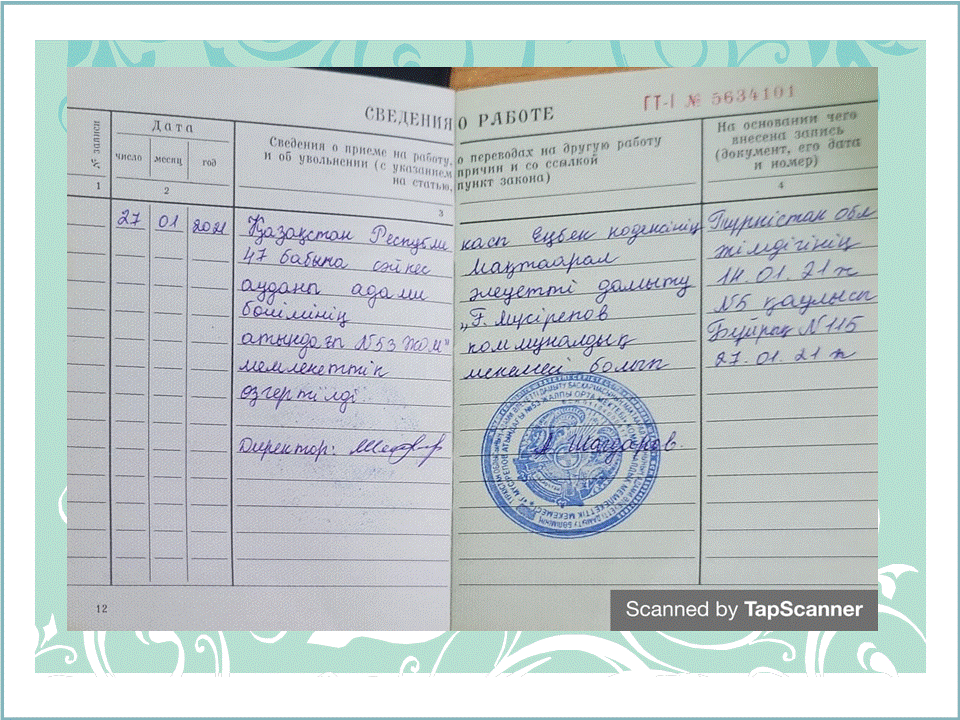 СВЕДЕНИЯ О РАБОТЕ
ГТ-I № 5634101
№ записи
Дата
число
месяц
год
Сведения о приеме на работу, о переводах на другую работу
и об увольнении (с указанием причин и со ссылкой
на статью, пункт закона)
На основании чего
внесена запись
(документ, его дата
и номер)
1
2
3
4
27 01 2021 Қазақстан Республикасы Еңбек кодексінің Түркістан обл
47 бабына сәйкес Мақтаарал әкімдігінің
ауданы адами әлеуетті дамыту 14.01.21ж
бөлімінің „Ғ.Мүсірепов N5 қаулысы
атындағы N53 ЖОМ" коммуналдық Бұйрық N115
мемлекеттік мекемесі болып 27.01.21ж
өзгертілді
Директор: А. Шағдаров.
12
Scanned by TapScanner